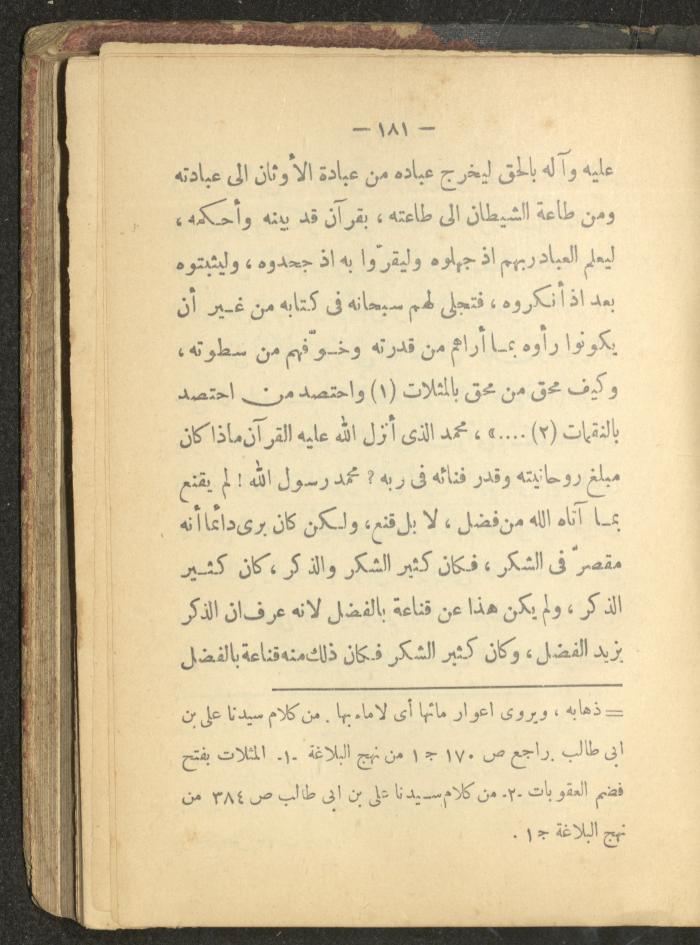 — ١٨١ —
عليه وآله بالحق ليخرج عباده من عبادة الأوثان الى عبادته
ومن طاعة الشيطان الى طاعته ، بقرآن قد بينه وأحكمه ،
ليعلم العباد ربهم اذ جهلوه وليقرّوا به اذ جحدوه ، وليثبتوه
بعد اذ أنكروه ، فتجلى لهم سبحانه فى كتابه من غير أن
يكونوا رأوه بما أراهم من قدرته وخوّفهم من سطوته ،
وكيف محق من محق بالمثلات (١) واحتصد من احتصد
بالنقمات (٢) ....» ، محمد الذى أنزل الله عليه القرآن ماذا كان
مبلغ روحانيته وقدر فنائه فى ربه ? محمد رسول الله ! لم يقنع
بما آتاه الله من فضل ، لا بل قنع، ولكن كان يرى دائما أنه
مقصرّ فى الشكر ، فكان كثير الشكر والذكر ، كان كثير
الذكر ، ولم يكن هذا عن قناعة بالفضل لانه عرف ان الذكر
يزيد الفضل ، وكان كثير الشكر فكان ذلك منه قناعة بالفضل
= ذهابه ، ويروى اعوار مائها أى لاماء بها . من كلام سيدنا على بن
ابى طالب . راجع ص ١٧٠ ج ١ من نهج البلاغة -١- المثلات بفتح
فضم العقوبات -٢- من كلام سيدنا على بن ابى طالب ص ٣٨٤ من
نهج البلاغة ج ١ .